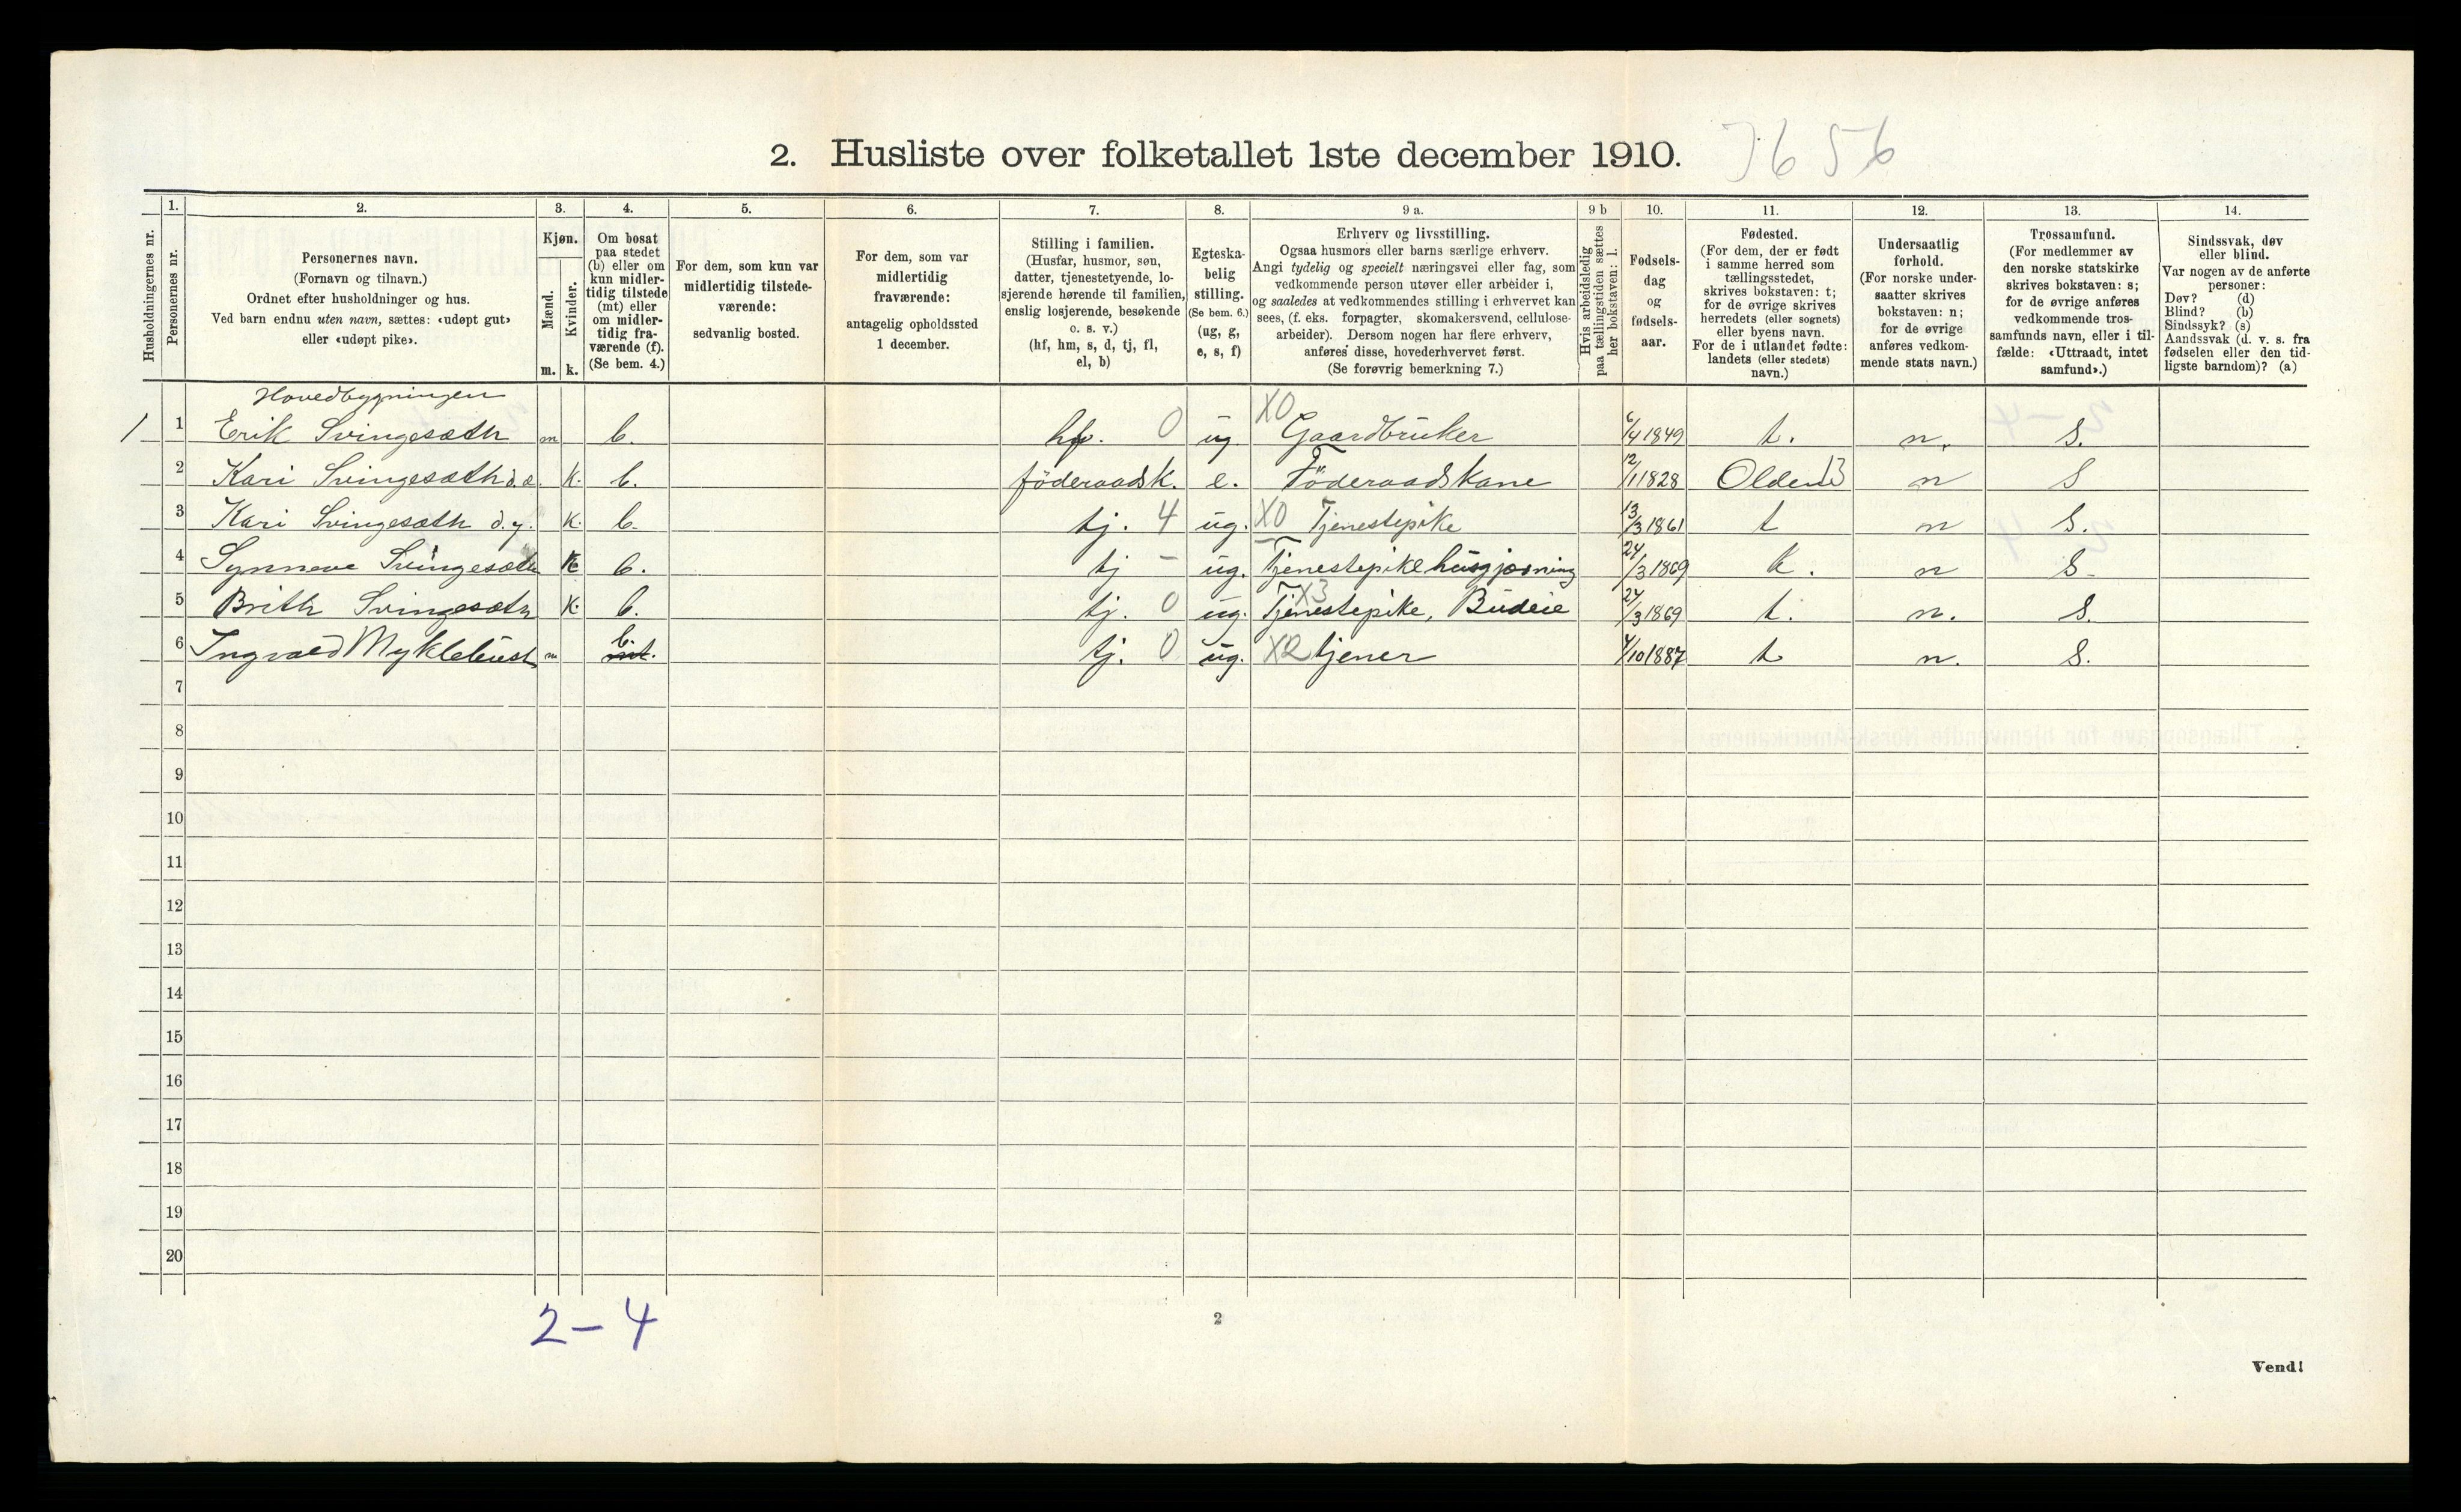 2. Husliste over folketallet 1ste december 1910. 7656
Husholdningernes nr.
1. Personernes nr.
2. Personernes navn.
(Fornavn og tilnavn.)
Ordnet efter husholdninger og hus.
Ved barn endnu uten navn, sættes: «udøpt gut»
eller «udøpt pike».
3. Kjøn.
Mænd. m.
Kvinder. k.
4. Om bosat
paa stedet
(b) eller om
kun midler-
tidig tilstede
(mt) eller
om midler-
tidig fra-
værende (f).
(Se bem. 4.)
5. For dem, som kun var
midlertidig tilstede-
værende:
sedvanlig bosted.
6. For dem, som var
midlertidig
fraværende:
antagelig opholdssted
1 december.
7. Stilling i familien.
(Husfar, husmor, søn,
datter, tjenestetyende, lo-
sjerende hørende til familien,
enslig losjerende, besøkende
o. s. v.)
(hf, hm, s, d, tj, fl,
el, b)
8. Egteska-
belig
stilling.
(Se bem. 6.)
(ug, g,
e, s, f)
9 a. Erhverv og livsstilling.
Ogsaa husmors eller barns særlige erhverv.
Angi tydelig og specielt næringsvei eller fag, som
vedkommende person utøver eller arbeider i,
og saaledes at vedkommendes stilling i erhvervet kan
sees, (f. eks. forpagter, skomakersvend, cellulose-
arbeider). Dersom nogen har flere erhverv,
anføres disse, hovederhvervet først.
(Se forøvrig bemerkning 7.)
9 b Hvis arbeidsledig
paa tællingstiden sættes
her bokstaven: l.
10. Fødsels-
dag
og
fødsels-
aar.
11. Fødested.
(For dem, der er født
i samme herred som
tællingsstedet,
skrives bokstaven: t;
for de øvrige skrives
herredets (eller sognets)
eller byens navn.
For de i utlandet fødte:
landets (eller stedets)
navn.)
12. Undersaatlig
forhold.
(For norske under-
saatter skrives
bokstaven: n;
for de øvrige
anføres vedkom-
mende stats navn.)
13. Trossamfund.
(For medlemmer av
den norske statskirke
skrives bokstaven: s;
for de øvrige anføres
vedkommende tros-
samfunds navn, eller i til-
fælde: «Uttraadt, intet
samfund».)
14. Sindssvak, døv
eller blind.
Var nogen av de anførte
personer:
Døv? (d)
Blind? (b)
Sindssyk? (s)
Aandssvak (d. v. s. fra
fødselen eller den tid-
ligste barndom)? (a)
Hovedbygningen
1 1 Erik Svingesæth m b. hf. 0 ug X0 Gaardbruker 6/4 1849 t. n. s.
2 Kari Svingesæth d.æ. k. b. föderaadsk. e. Föderaadskone 12/1 1828 Olden 13 n s
3 Kari Svingesæth d.y. k. b. tj. 4 ug. X0 Tjenestepike 13/3 1861 t n s.
4 Synneve Svingesæth k b. tj - ug. Tjenestepike husgjerning 24/3 1869 t. n s
5 Brith Svingesæth k. b. tj. 0 ug. X3 Tjenestepike, Budeie 24/3 1869 t. n. s.
6 Ingvald Myklebust m b. mt. tj. 0 ug. X2 tjener 4/10 1887 t n. s.
7
8
9
10
11
12
13
14
15
16
17
18
19
20
2-4
2
Vend!